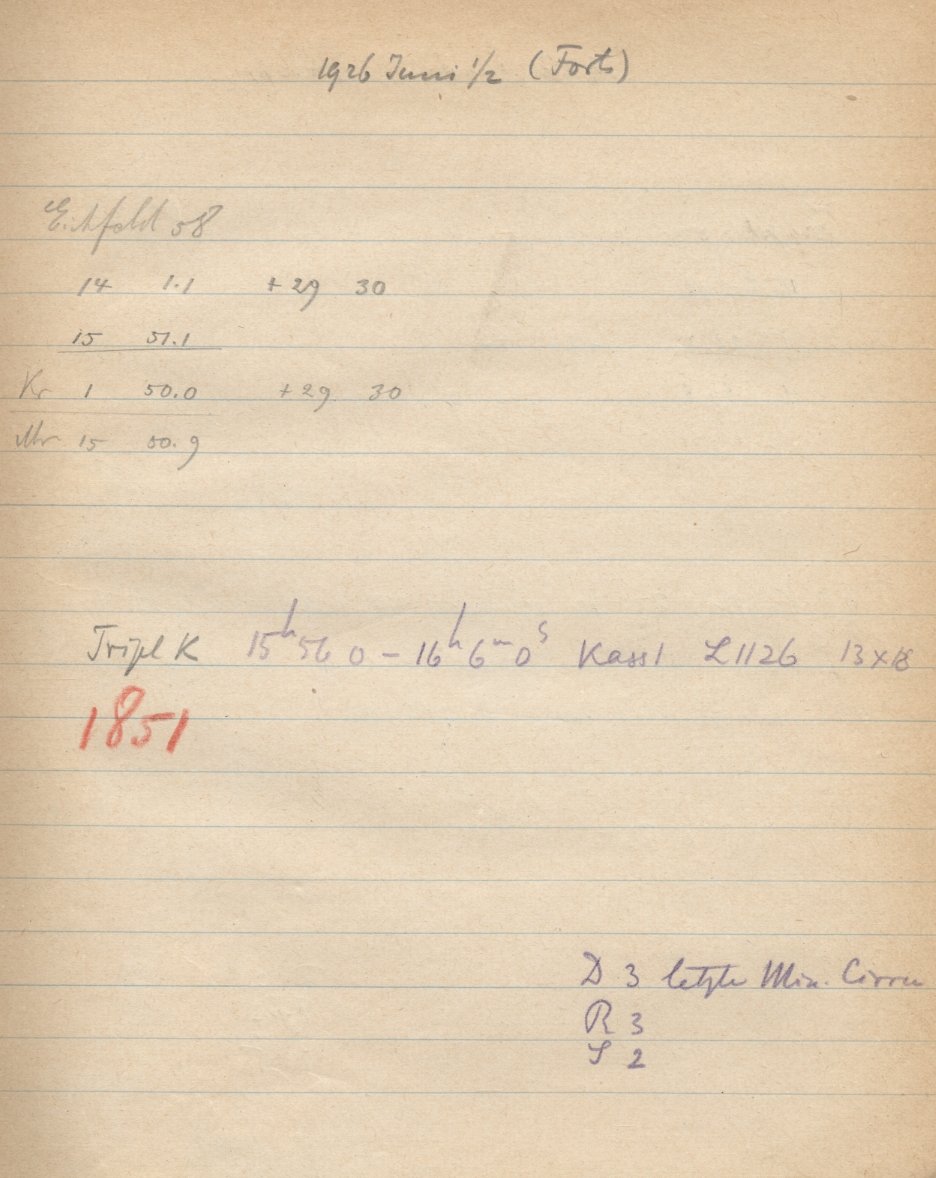 1926 Juni 1/2 (Forts)
Eichfeld 58
14 1.1 +29 30
15 51.1
Kr 1 50.0 +29 30
Mr 15 50.9
Tripl K 15h 56 0 – 16h 6m 0s Kass 1 L 1126 13×18
1851
D 3 letzte Min. Cirren
R 3
S 2